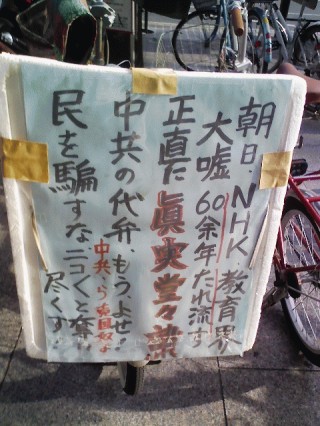 朝日・NHK教育界
大嘘60余年たれ流す
正直に眞実堂々業
中共の代弁、もう、よせ!
民を騙すな、ニコくと奪い尽くす
中共